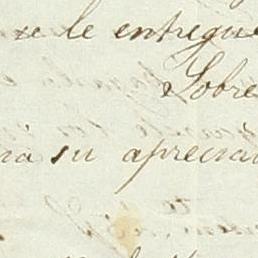 se le entregue
Sobre
su aprecia